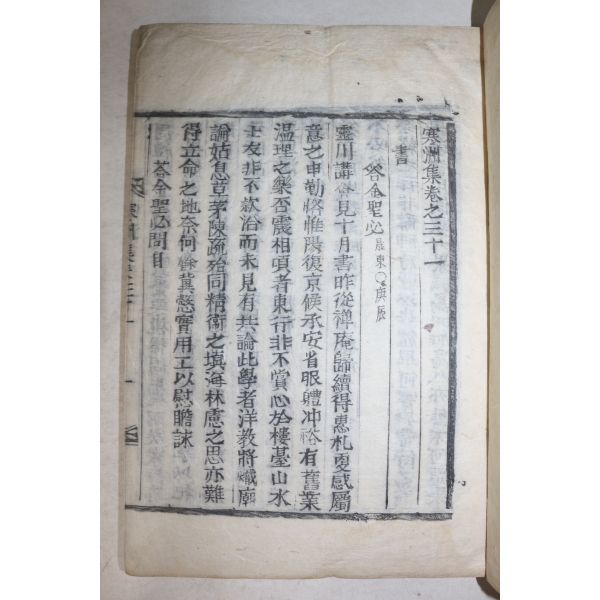 寒洲集卷之三十一
書
答金聖必 晨東○庚辰
靈川講會見十月書昨從禫庵歸續得惠札夏感屬
意之申勤恪惟陽復京候承安省眼軆冲裕有舊業
溫理之樂否震相頃者東行非不賞心於樓臺山水
士友非不款洽而未見有共論此學者洋教將熾廓
論姑息草茅陳疏殆同精衛之塡海林慮之思亦難
得立命之地奈何餘冀懋實用工以慰瞻誄
答金聖必問目
寒洲集卷三十一
一